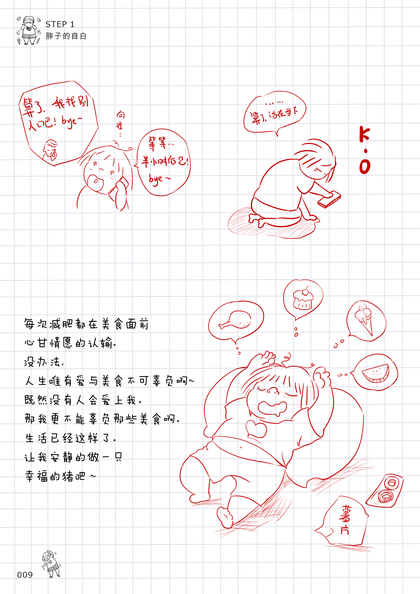 STEP 1
胖子的自白
算了，我找别
人吧！bye~
等等…
半小时后见！
bye~
……
算了，活在当下
K.O
每次减肥都在美食面前
心甘情愿的认输.
没办法，
人生唯有爱与美食不可辜负啊~
既然没有人会爱上我.
那我更不能辜负那些美食啊.
生活已经这样了.
让我安静的做一只
幸福的猪吧~
薯片
009